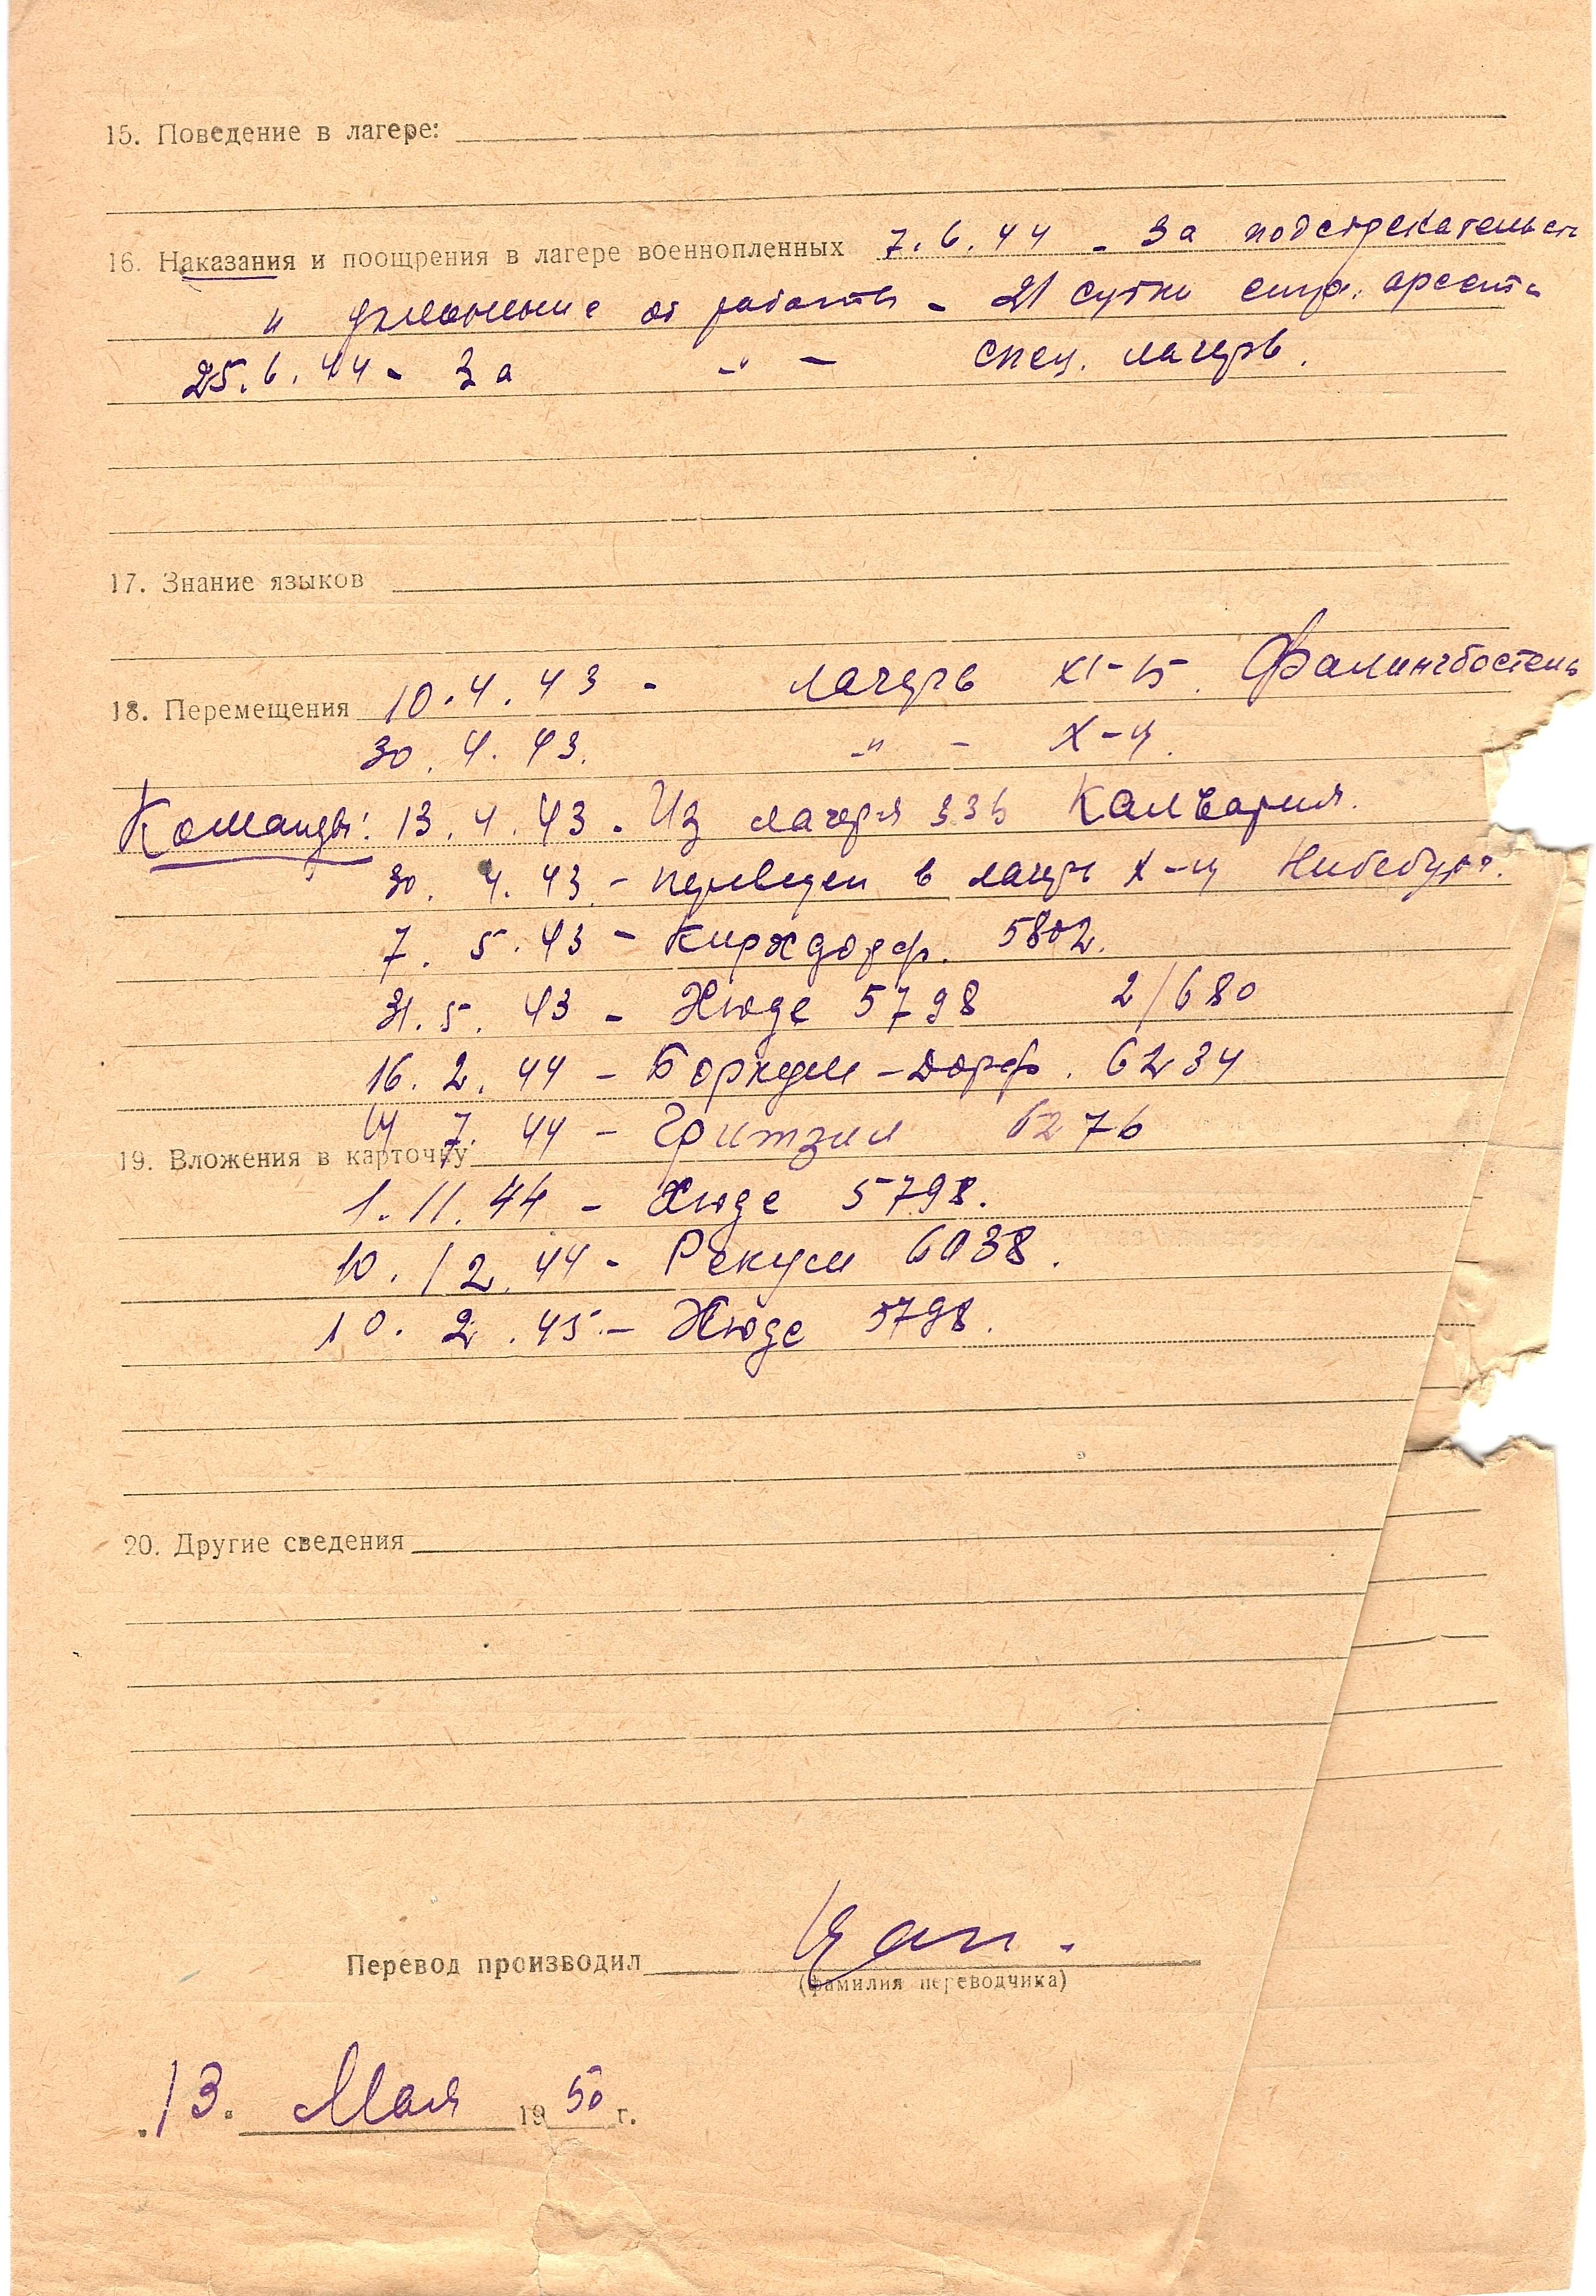 15. Поведение в лагере:
16. Наказания и поощрения в лагере военнопленных 7.6.44 - За подстрекательств
и уклонение от работы - 21 сутки стр. ареста
25.6.44 - За -"- спец. лагерь.
17. Знание языков
18. Перемещения 10.4.43 - лагерь XI-Б. Фалингбостель
30.4.43. -"- X-Ц.
Команды: 13.4.43 - Из лагеря 336 Калвария.
30.4.43 - переведен в лагерь X-Ц
7.5.43 - Кирхдорф. 5802.
31.5.43 - Хюде 5798 2/680
16.2.44 - Боркум-Дорф. 6234
7.44 - 6276
19. Вложения в карточку
1.11.44 - Хюде 5798.
10.12.44 - Рекум 6038.
10.2.45 - Хюде 5798.
20. Другие сведения
Перевод производил
(фамилия переводчика)
13. Мая 1950 г.